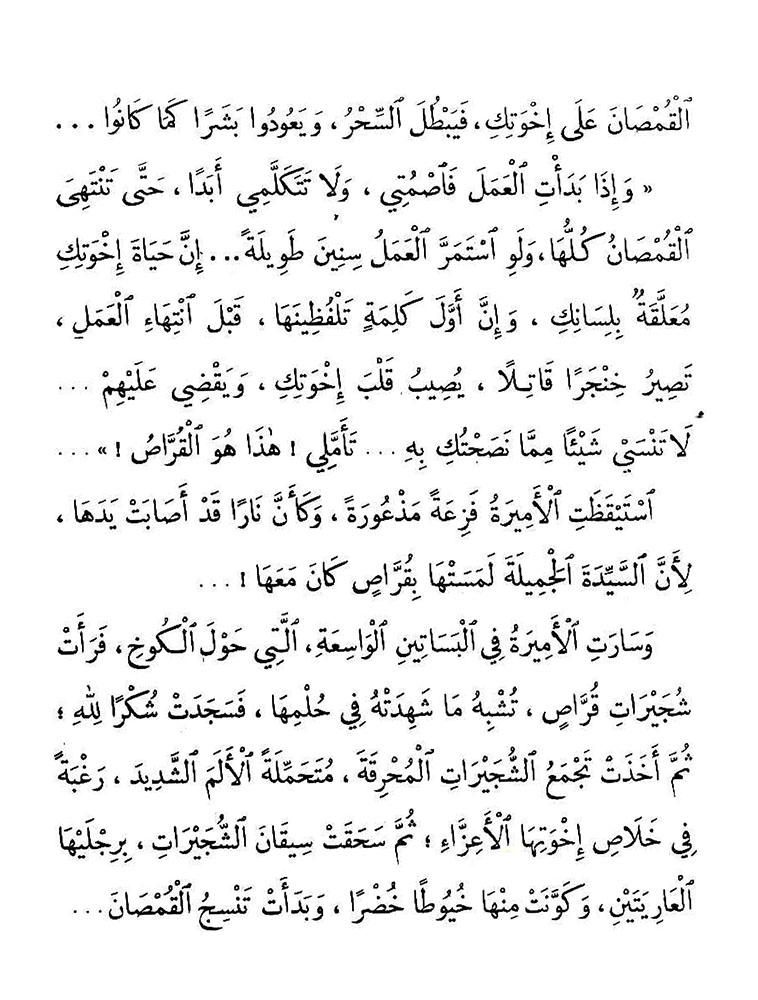 ٱلْقُمْصَانَ عَلَى إِخْوَتِكِ، فَيَبْطُلَ ٱلسِّحْرُ، وَيَعُودُوا بَشَرًا كَمَا كَانُوا ...
« وَإِذَا بَدَأْتِ ٱلْعَمَلَ فَٱصْمُتِي ، وَلَا تَتَكَلَّمِي أَبَدًا ، حَتَّى تَنْتَهِىَ
ٱلْقُمْصَانُ كُلُّهَا، وَلَوِ ٱسْتَمَرَّ ٱلْعَمَلُ سِنِينَ طَوِيلَةً... إِنَّ حَيَاةَ إِخْوَتِكِ
مُعَلَّقَةٌ بِلِسَانِكِ ، وَإِنَّ أَوَّلَ كَلِمَةٍ تَلْفُظِينَهَا ، قَبْلَ ٱنْتِهَاءِ ٱلْعَمَلِ ،
تَصِيرُ خِنْجَرًا قَاتِلًا ، يُصِيبُ قَلْبَ إِخْوَتِكِ ، وَيَقْضِي عَلَيْهِمْ ...
لَا تَنْسَيْ شَيْئًا مِمَّا نَصَحْتُكِ بِهِ ... تَأَمَّلِي ! هٰذَا هُوَ ٱلْقُرَّاصُ ! » ...
ٱسْتَيْقَظَتِ ٱلْأَمِيرَةُ فَزِعَةً مَذْعُورَةً ، وَكَأَنَّ نَارًا قَدْ أَصَابَتْ يَدَهَا ،
لِأَنَّ ٱلسَّيِّدَةَ ٱلْجَمِيلَةَ لَمَسَتْهَا بِقُرَّاصٍ كَانَ مَعَهَا ! ...
وَسَارَتِ ٱلْأَمِيرَةُ فِي ٱلْبَسَاتِينِ ٱلْوَاسِعَةِ، ٱلَّتِي حَوْلَ ٱلْكُوخِ ، فَرَأَتْ
شُجَيْرَاتِ قُرَّاصٍ ، تُشْبِهُ مَا شَهِدَتْهُ فِي حُلْمِهَا ، فَسَجَدَتْ شُكْرًا لِلّٰهِ ؛
ثُمَّ أَخَذَتْ تَجْمَعُ ٱلشُّجَيْرَاتِ ٱلْمُحْرِقَةَ ، مُتَحَمِّلَةً ٱلْأَلَمَ ٱلشَّدِيدَ ، رَغْبَةً
فِي خَلَاصِ إِخْوَتِهَا ٱلْأَعِزَّاءِ ؛ ثُمَّ سَحَقَتْ سِيقَانَ ٱلشُّجَيْرَاتِ ، بِرِجْلَيْهَا
ٱلْعَارِيَتَيْنِ ، وَكَوَّنَتْ مِنْهَا خُيُوطًا خُضْرًا ، وَبَدَأَتْ تَنْسِجُ ٱلْقُمْصَانَ ...